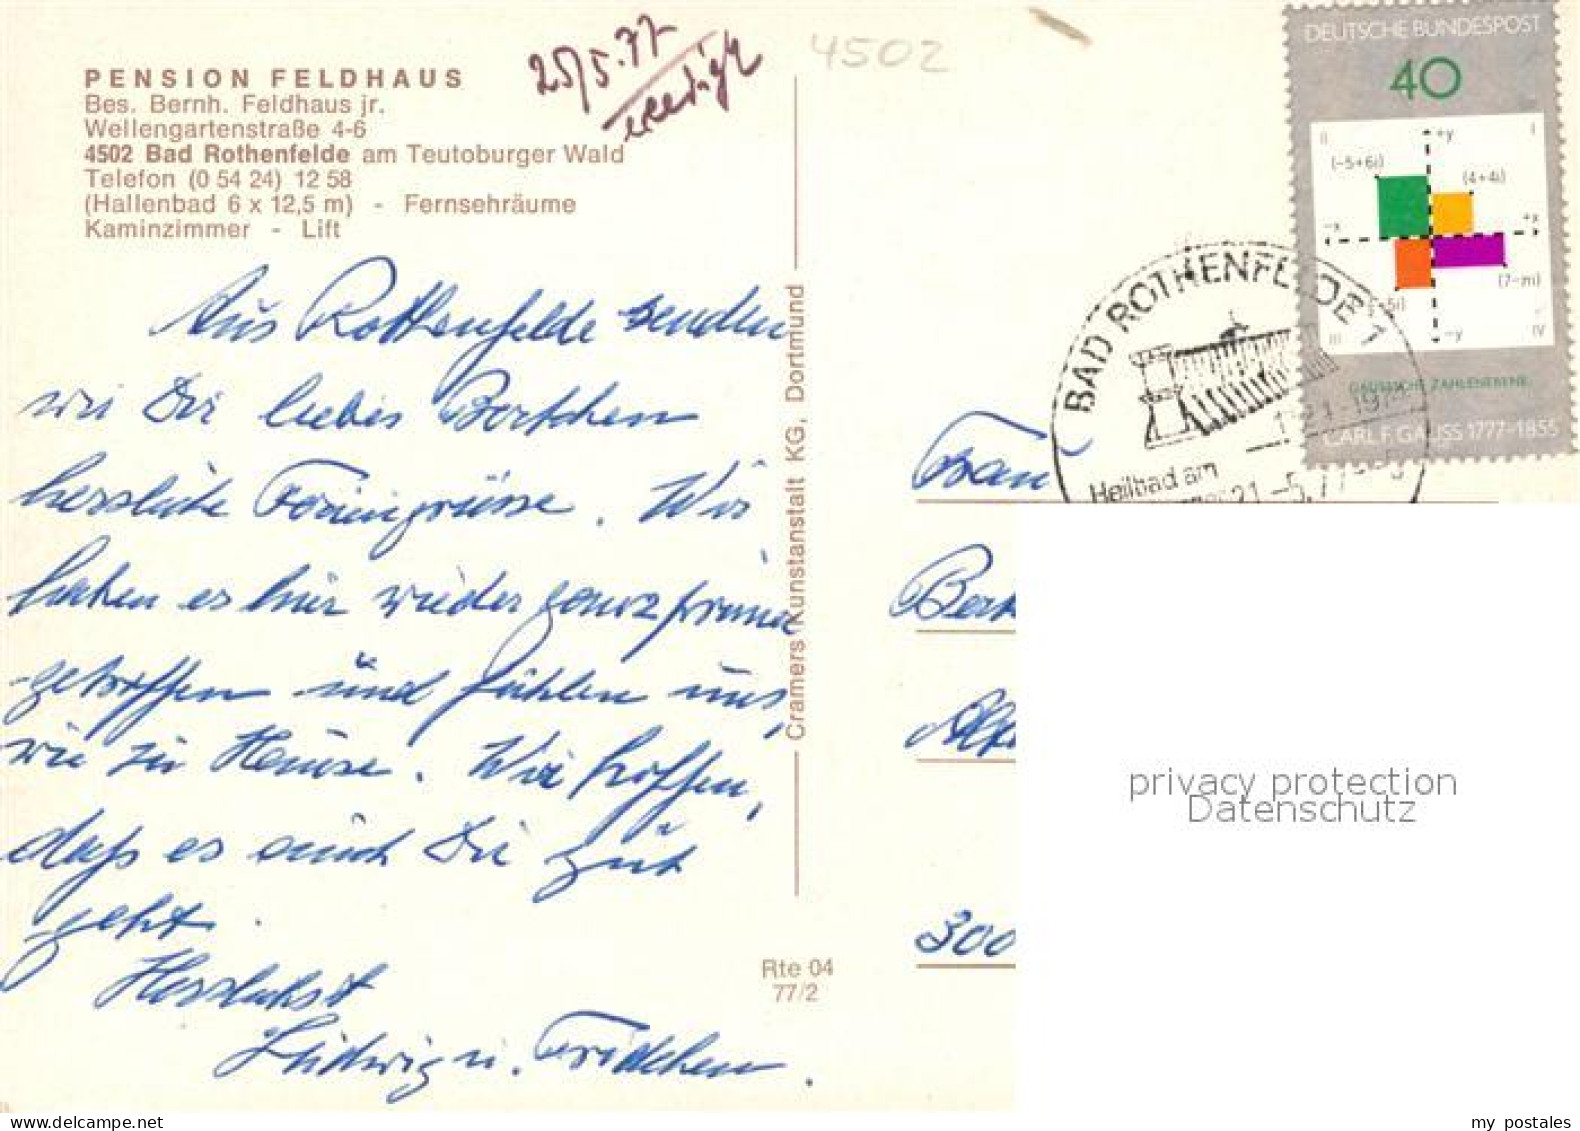 PENSION FELDHAUS
Bes. Bernh. Feldhaus jr.
Wellengartenstraße 4-6
4502 Bad Rothenfelde am Teutoburger Wald
Telefon (0 54 24) 12 58
(Hallenbad 6 x 12,5 m) - Fernsehräume
Kaminzimmer - Lift
25/5.77
erledigt
4502
Aus Rothenfelde senden
wir Dir liebes Bertchen
herzliche Feriengrüsse. Wir
haben es hier wieder ganz prima
getroffen und fühlen uns,
wie zu Hause. Wir hoffen,
daß es auch Dir gut
geht.
Herzlichst
Ludwig u. Friedchen.
Cramers Kunstanstalt KG, Dortmund
Rte 04
77/2
DEUTSCHE BUNDESPOST
40
II +y I
(-5+6i) (4+4i)
-x +x
(7-πi)
-5i)
III -y IV
GAUSSSCHE ZAHLENEBENE
CARL F. GAUSS 1777-1855
BAD ROTHENFELDE 1
Heilbad am
21.-5.77
Frau
300
privacy protection
Datenschutz
www.ansichtskartenversand.com
my postales